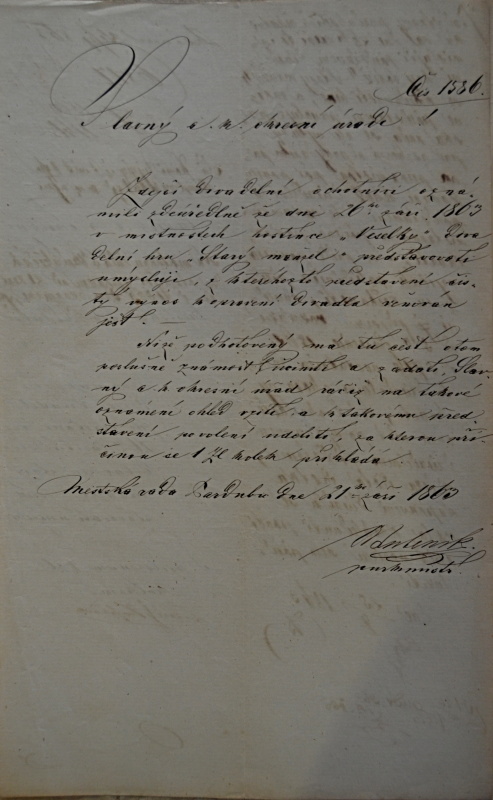 Čís 1536.
Slavný c. k. okresní úrade!
Zdejší divadelní ochotníci ozná-
mili zdeúředlně že dne 26ho září 1863
v místnostech hostince „Veselky" diva-
delní hru „Starý mládenec" představovati
umýslují, z kteréhožto představení čis-
tý výnos k opravení divadla věnován
jest. —
Níže podhotovený má tu čest o tom
poslušně známost učiniti a žádati, Slav-
ný c k okresní úřad račiž na takové
oznámení ohled vzíti a k takovému před
stavení povolení uděliti, za kterou pří-
činou se 1 Zl kolek přikládá.
Městská rada Pardubic dne 21ho září 1863
purkmistr.